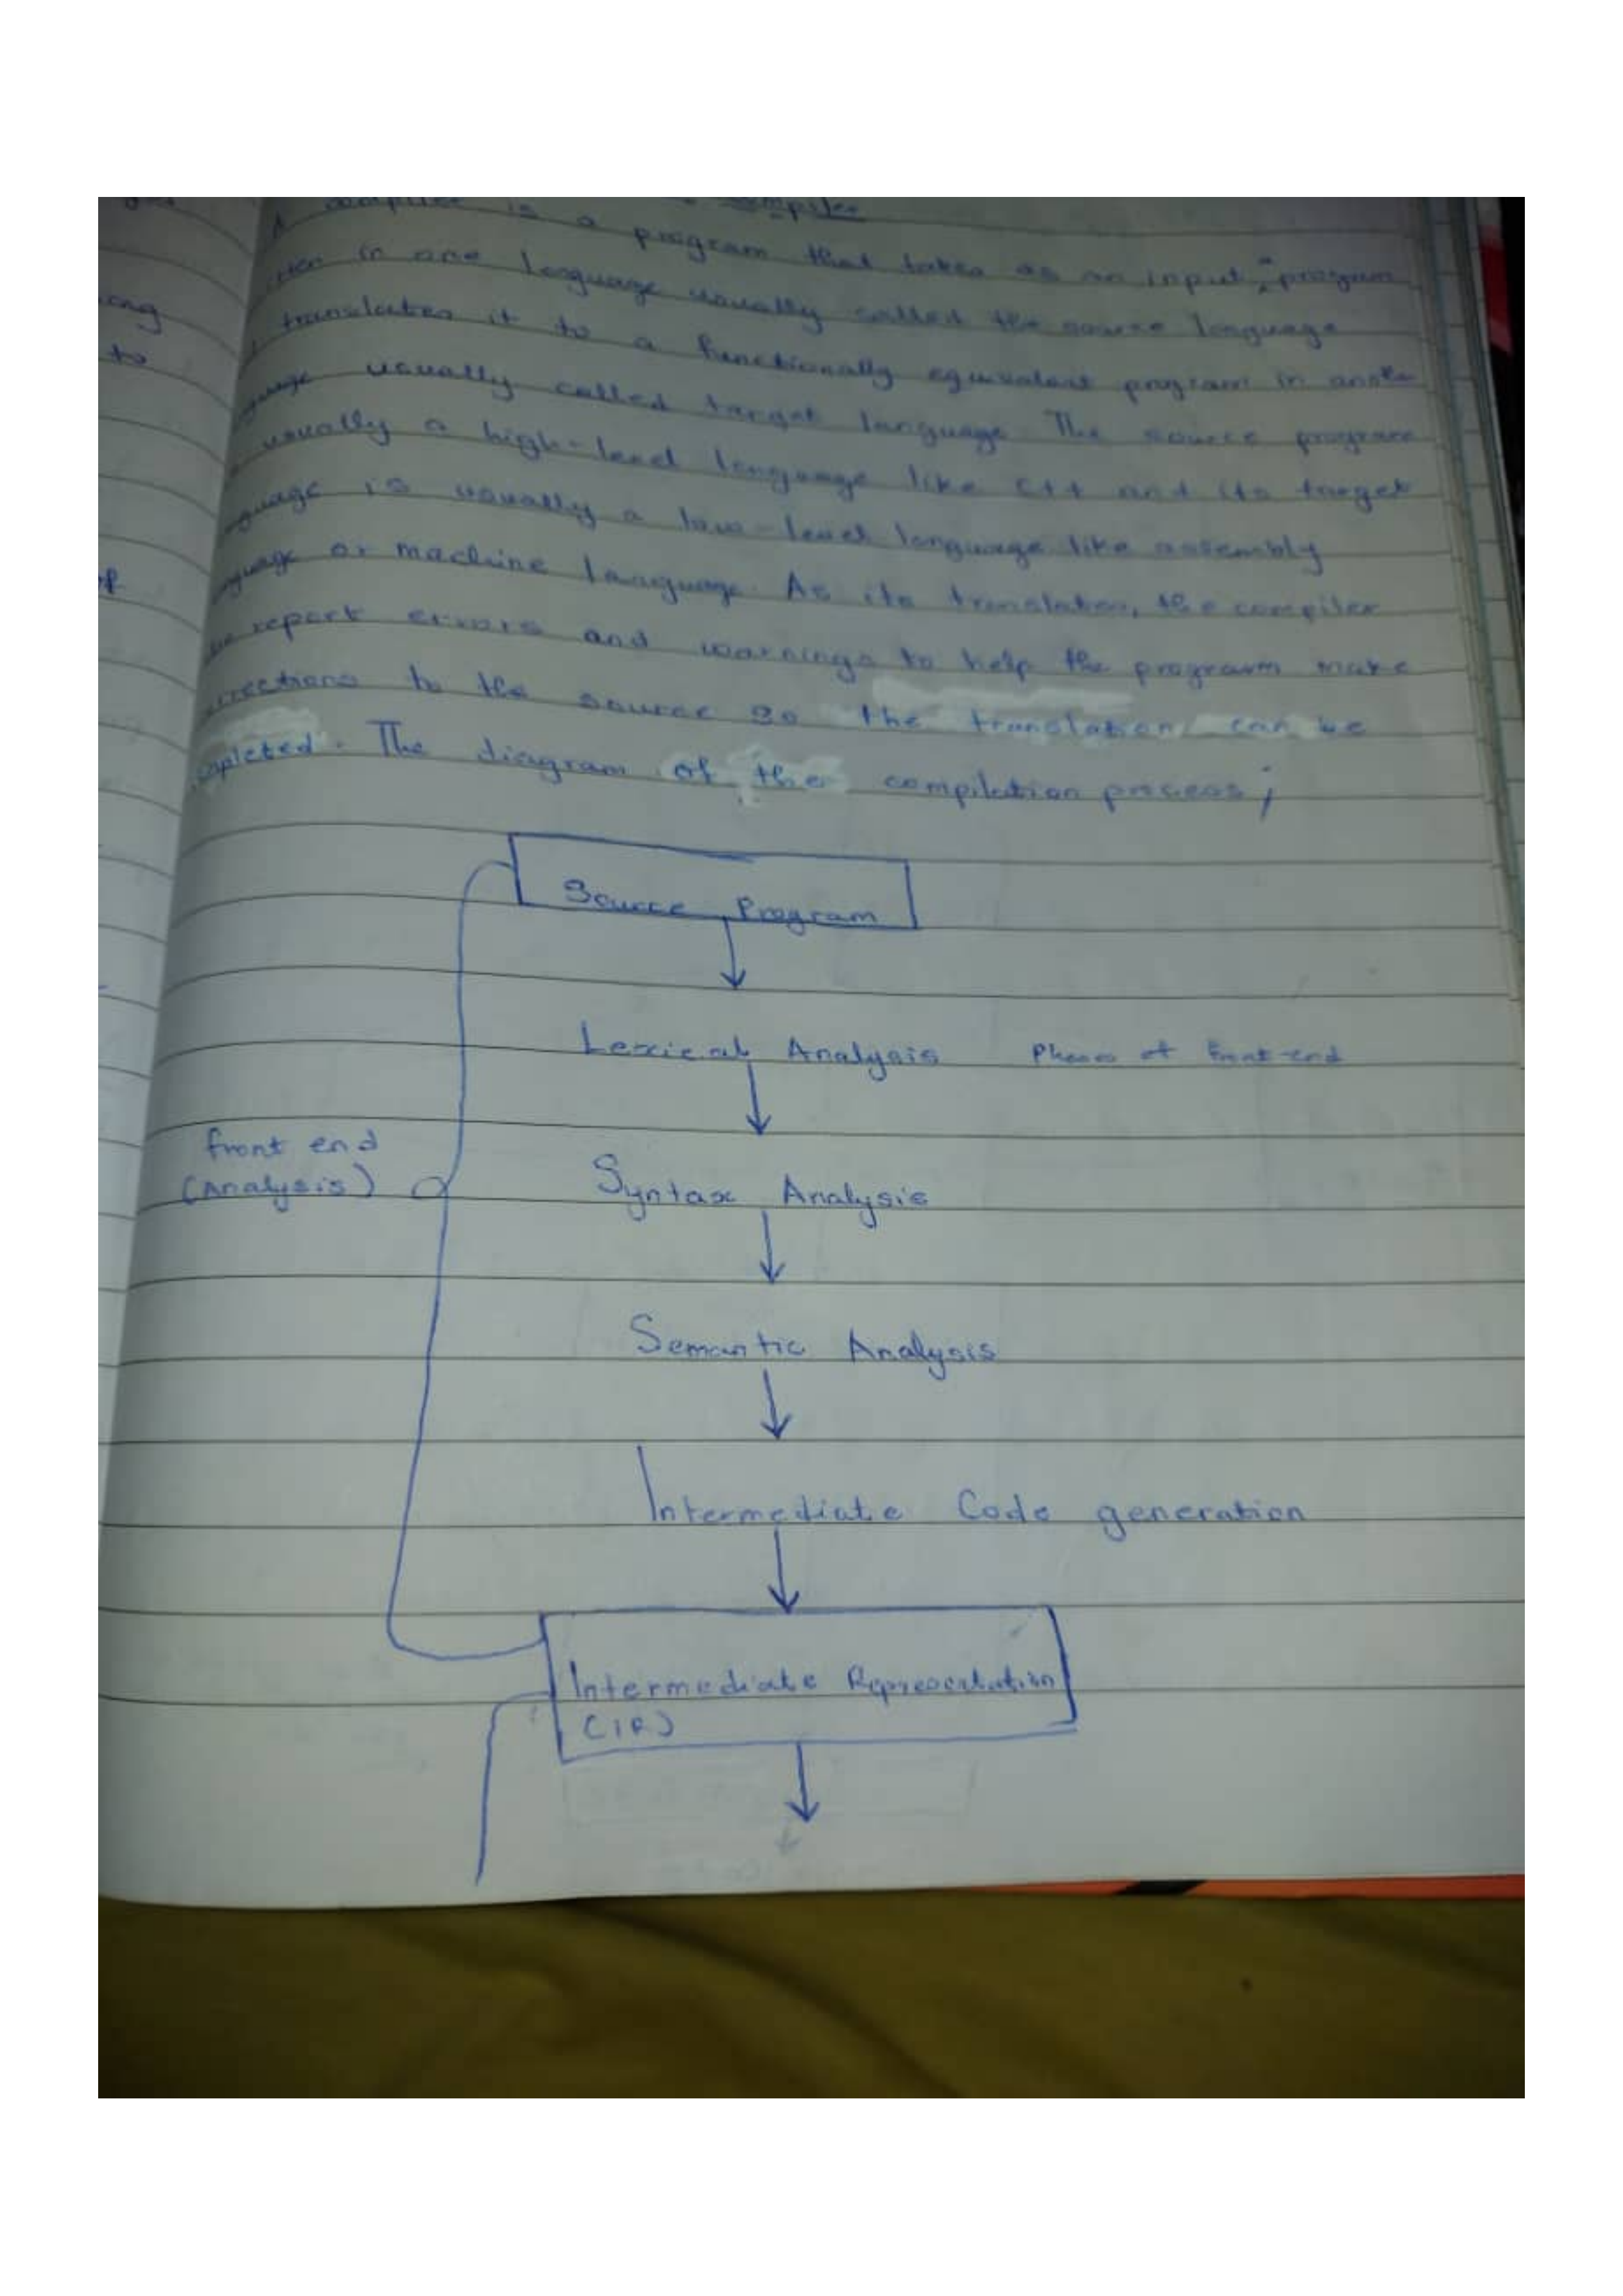 ompiler
A compiler is a program that takes as an input a program
tten in one language usually called the source language
translates it to a functionally equivalent program in anothe
guage usually called target language. The source program
usually a high-level language like C++ and its target
guage is usually a low-level language like assembly
guage or machine language. As its translation, the compiler
report errors and warnings to help the program make
rrections to the source so the translation can be
mpleted. The diagram of the compilation process;
Source Program
Lexical Analysis Phases of front-end
front end
(Analysis)
Syntax Analysis
Semantic Analysis
Intermediate Code generation
Intermediate Representation
(IR)
ong
to
of